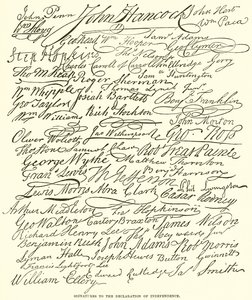 John Penn John Hancock John Hart
Wm Hooper Wm Paca
Sam Adams
Geo Clymer
Step Hopkins
Charles Carroll of Carrollton Elbridge Gerry
Tho M Kean Roger Sherman Sam Huntington
Wm Whipple Thomas Lynch Junr
Geo Taylor Josiah Bartlett Benj Franklin
Wm Williams Rich Stockton John Morton
Oliver Wolcott Jno Witherspoon Geo Ross
Thos Stone Samuel Chase Robt Treat Paine
George Wythe Matthew Thornton
Frans Lewis Th Jefferson
Lewis Morris Abra Clark Caesar Rodney
Arthur Middleton Fras Hopkinson
Geo Walton Carter Braxton James Wilson
Richard Henry Lee Thos Heyward Junr
Benjamin Rush John Adams Robt Morris
Lyman Hall Joseph Hewes Button Gwinnett
Francis Lightfoot Lee
William Ellery Edward Rutledge Jas Smith
SIGNATURES TO THE DECLARATION OF INDEPENDENCE.